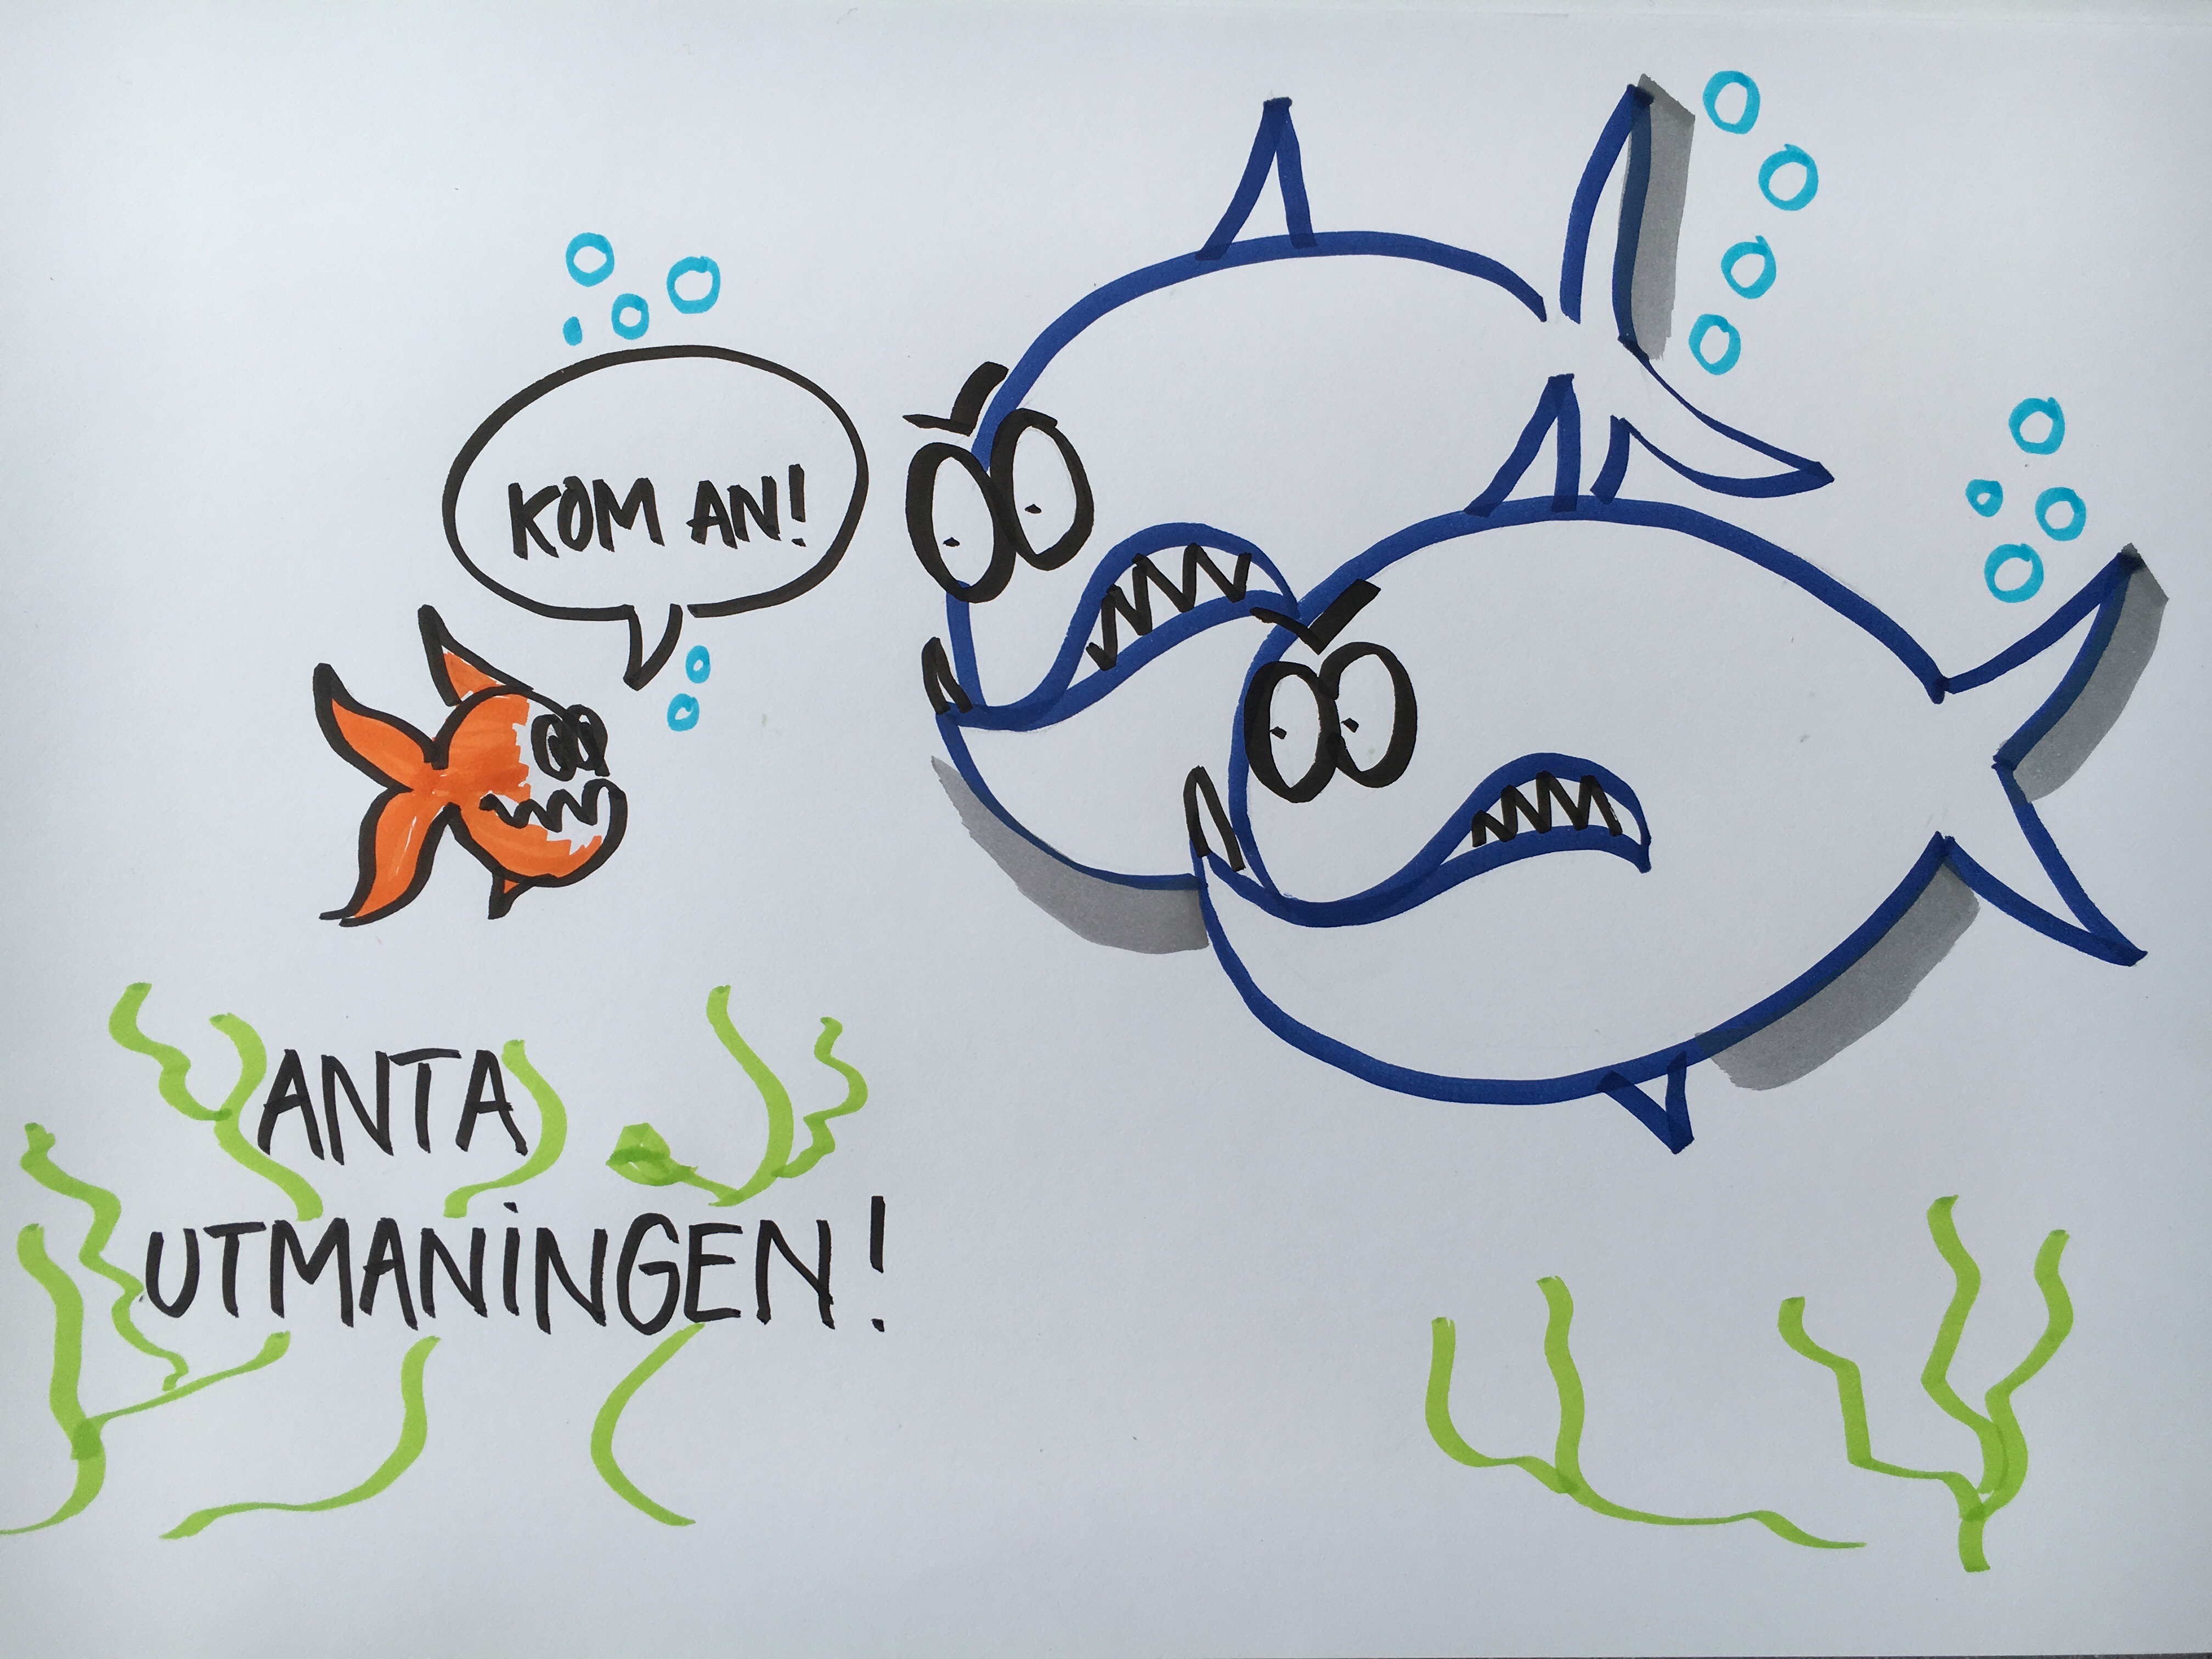 KOM AN!
ANTA
UTMANINGEN!